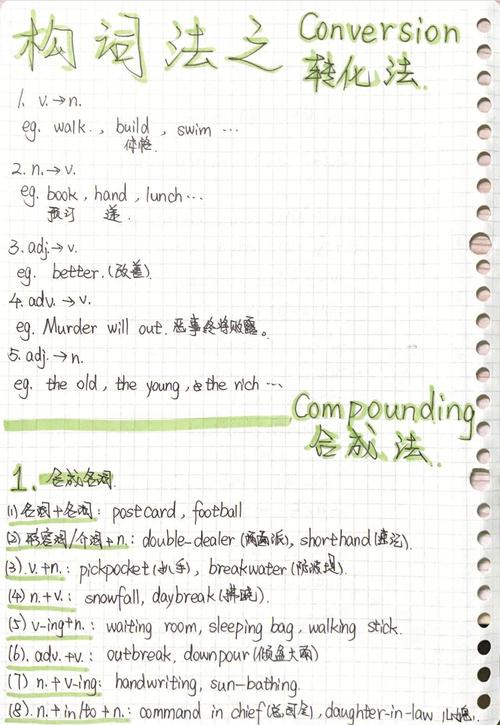 构词法之 Conversion
转化法.
1. v.→n.
eg. walk., build, swim ...
体格
2. n.→v.
eg. book, hand, lunch...
预习 递.
3. adj.→v.
eg. better.(改善).
4. adv.→v.
eg. Murder will out. 恶事终将败露。
5. adj.→n.
eg. the old, the young, the rich ...
Compounding
合成法.
1. 合成名词.
(1) 名词+名词: postcard, football
(2) 形容词/介词+n.: double-dealer (两面派), shorthand (速记).
(3). v.+n.: pickpocket (扒手), breakwater (防波堤).
(4) n.+v.: snowfall, daybreak (拂晓).
(5) v-ing+n.: waiting room, sleeping bag, walking stick.
(6). adv.+v.: outbreak, downpour (倾盆大雨)
(7) n.+v-ing: handwriting, sun-bathing.
(8). n.+in/to+n.: command in chief (总司令), daughter-in-law 儿媳.